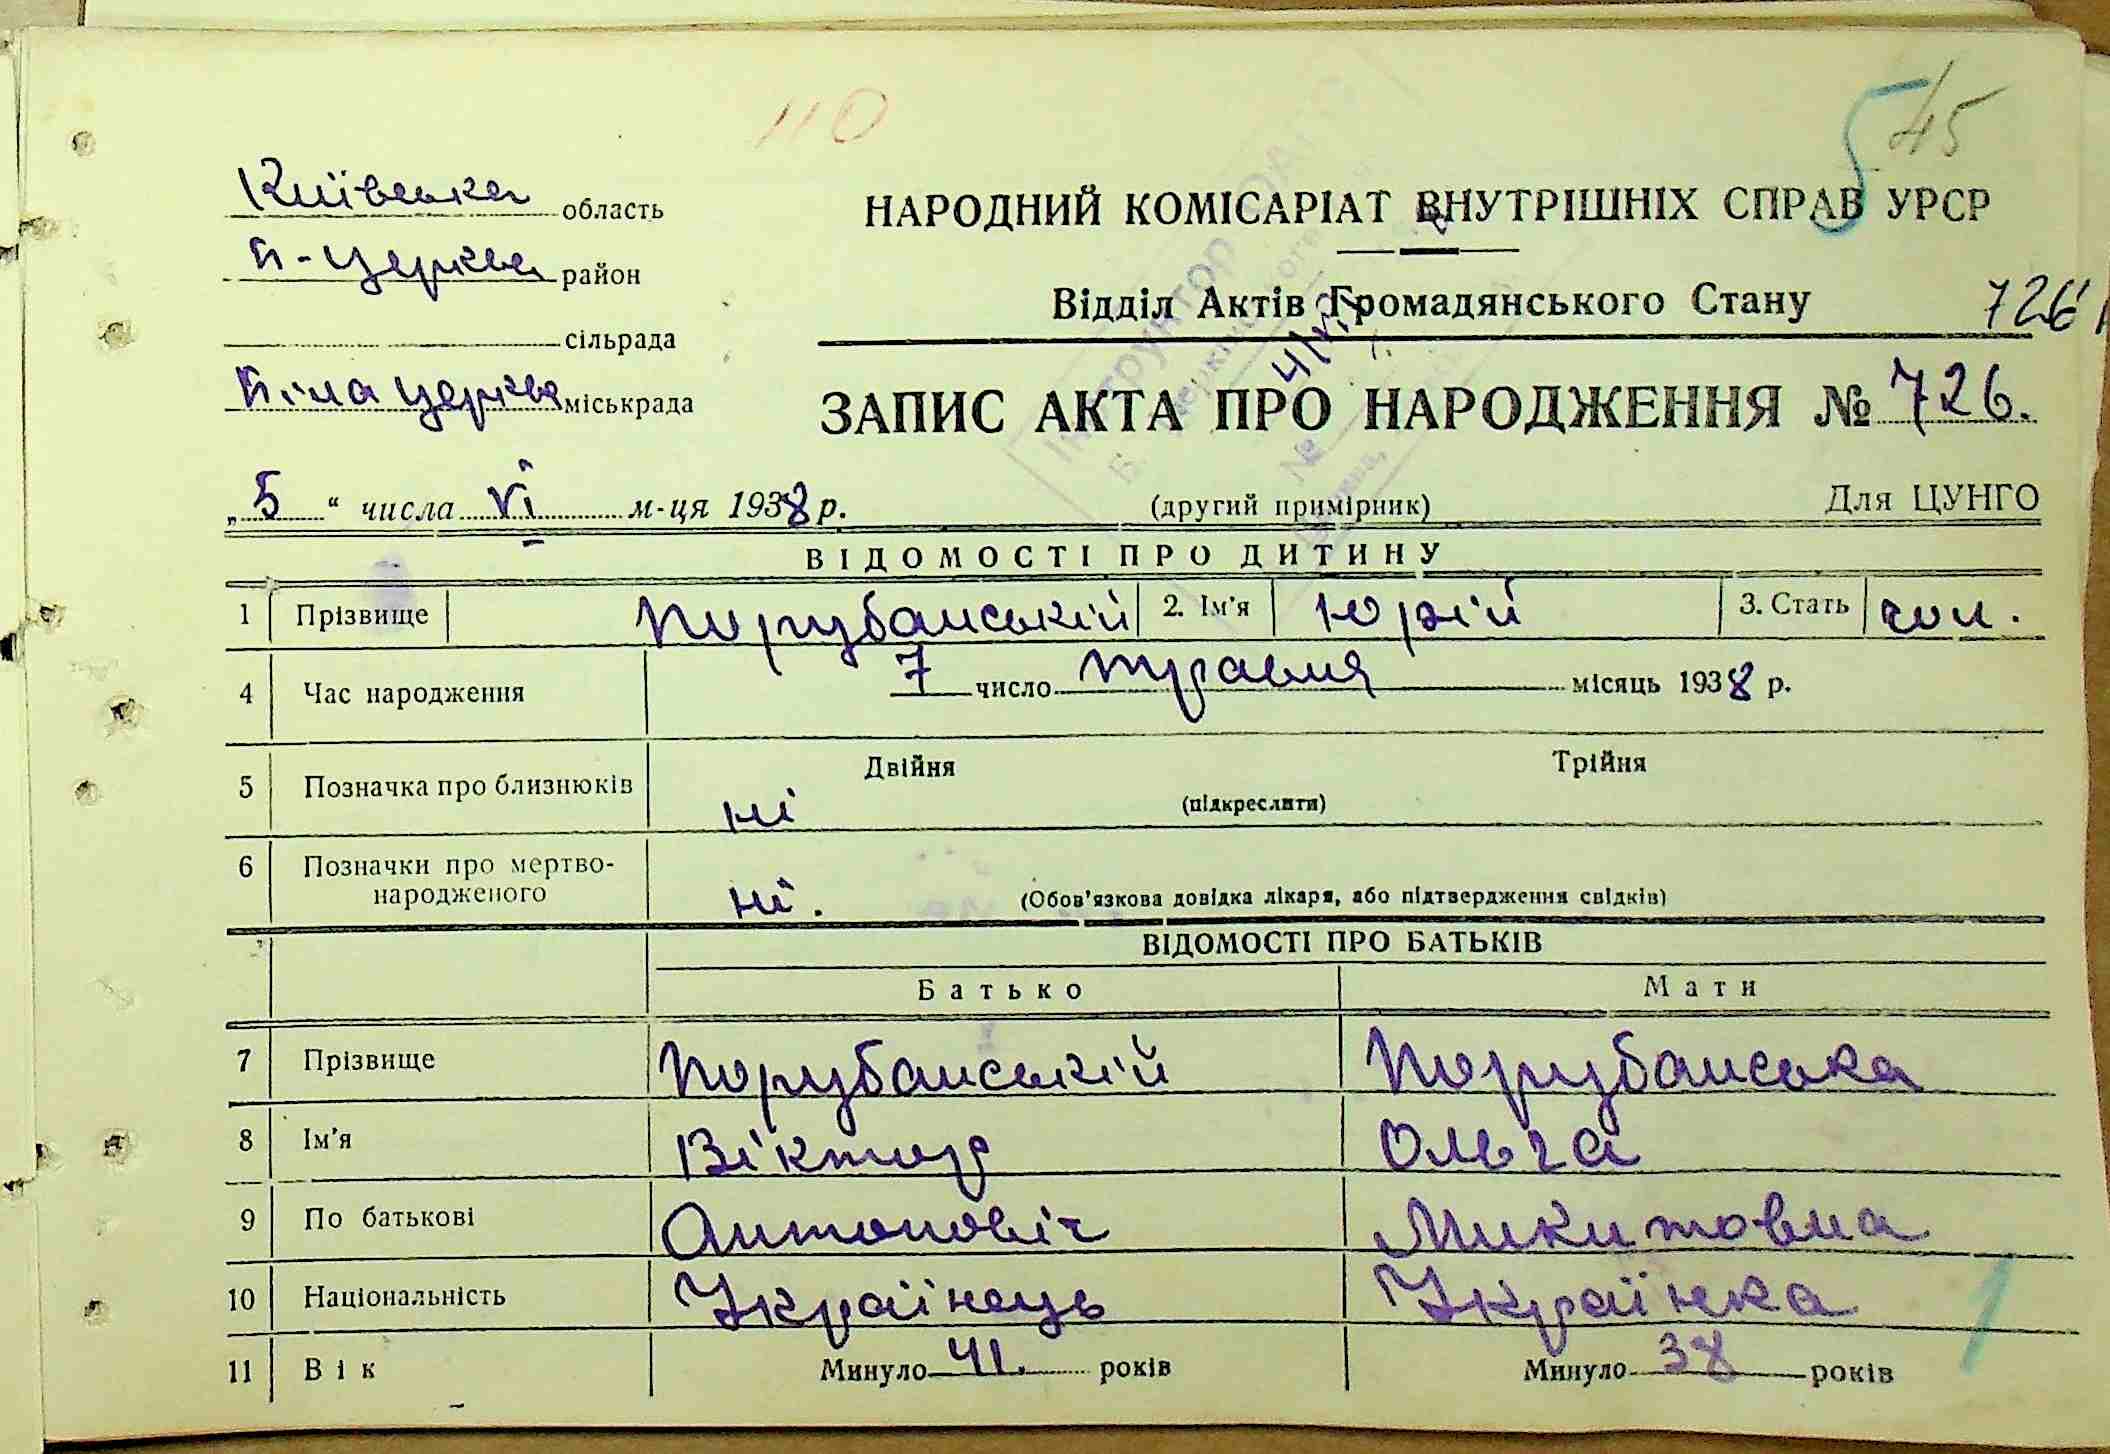 110
545
Київська область
НАРОДНИЙ КОМІСАРІАТ ВНУТРІШНІХ СПРАВ УРСР
Б-Церква район
Відділ Актів Громадянського Стану
726
сільрада
Біла церква міськрада
ЗАПИС АКТА ПРО НАРОДЖЕННЯ № 726.
„5“ числа VI м-ця 1938 р. (другий примірник) Для ЦУНГО
ВІДОМОСТІ ПРО ДИТИНУ
1 Прізвище Порубанській 2. Ім'я Юрій 3. Стать чол.
4 Час народження 7 число травня місяць 1938 р.
5 Позначка про близнюків ні Двійня (підкреслити) Трійня
6 Позначки про мертво-
народженого ні. (Обов'язкова довідка лікаря, або підтвердження свідків)
ВІДОМОСТІ ПРО БАТЬКІВ
Батько Мати
7 Прізвище Порубанській Порубанська
8 Ім'я Віктор Ольга
9 По батькові Антоновіч Микитовна
10 Національність Українець Українка
11 Вік Минуло 41 років Минуло 38 років
1